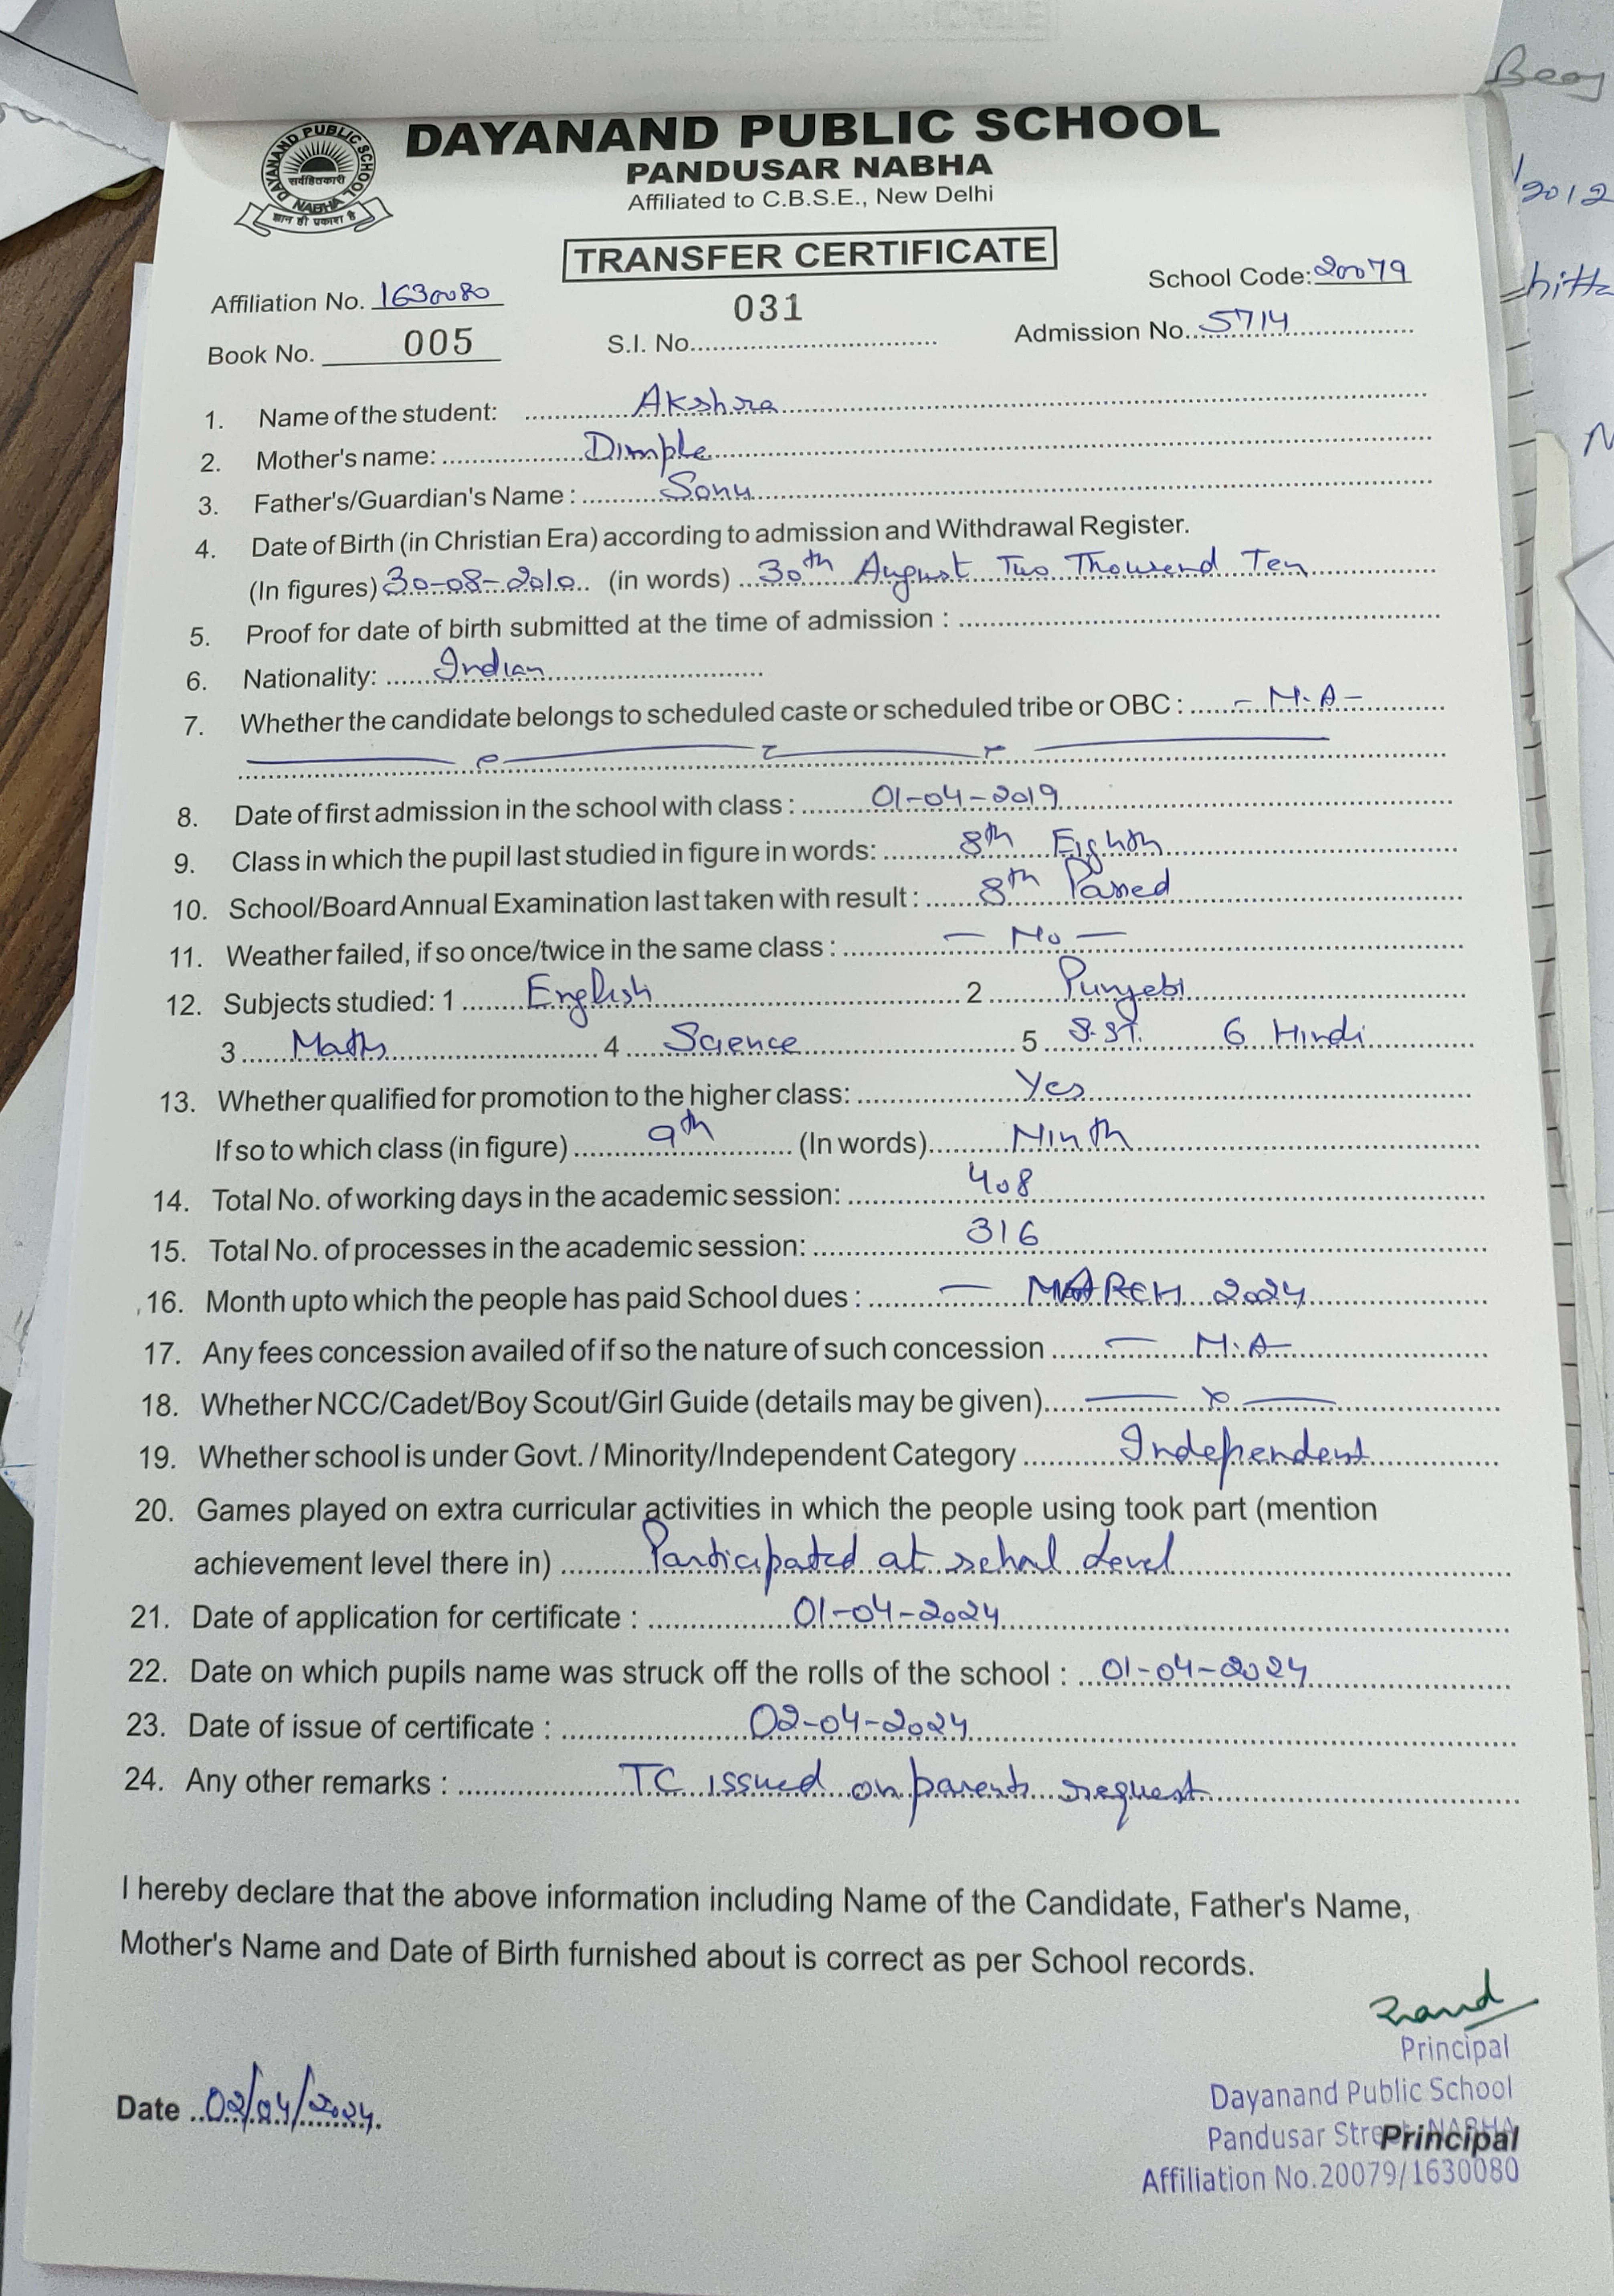 DAYANAND PUBLIC SCHOOL
DAYANAND PUBLIC SCHOOL
सर्वहितकारी
NABHA
ज्ञान ही प्रकाश है
PANDUSAR NABHA
Affiliated to C.B.S.E., New Delhi
TRANSFER CERTIFICATE
Affiliation No. 1630080 School Code: 20079
Book No. 005 S.I. No. 031 Admission No. 5714
1. Name of the student: Akshra
2. Mother's name: Dimple
3. Father's/Guardian's Name : Sonu
4. Date of Birth (in Christian Era) according to admission and Withdrawal Register.
(In figures) 30-08-2010 (in words) 30th August Two Thousend Ten
5. Proof for date of birth submitted at the time of admission :
6. Nationality: Indian
7. Whether the candidate belongs to scheduled caste or scheduled tribe or OBC : - N.A -
8. Date of first admission in the school with class : 01-04-2019
9. Class in which the pupil last studied in figure in words: 8th Eighth
10. School/Board Annual Examination last taken with result : 8th Passed
11. Weather failed, if so once/twice in the same class : - No -
12. Subjects studied: 1 English 2 Punjebi
3 Maths 4 Science 5 S.ST. 6 Hindi
13. Whether qualified for promotion to the higher class: Yes
If so to which class (in figure) 9th (In words) Ninth
14. Total No. of working days in the academic session: 408
15. Total No. of processes in the academic session: 316
16. Month upto which the people has paid School dues : - MARCH 2024
17. Any fees concession availed of if so the nature of such concession - N.A -
18. Whether NCC/Cadet/Boy Scout/Girl Guide (details may be given) - x -
19. Whether school is under Govt. / Minority/Independent Category Independent
20. Games played on extra curricular activities in which the people using took part (mention
achievement level there in) Participated at school level
21. Date of application for certificate : 01-04-2024
22. Date on which pupils name was struck off the rolls of the school : 01-04-2024
23. Date of issue of certificate : 02-04-2024
24. Any other remarks : TC issued on parents request
I hereby declare that the above information including Name of the Candidate, Father's Name,
Mother's Name and Date of Birth furnished about is correct as per School records.
Principal
Dayanand Public School
Date 02/04/2024.
Pandusar Street, NABHA
Principal
Affiliation No.20079/1630080
2012